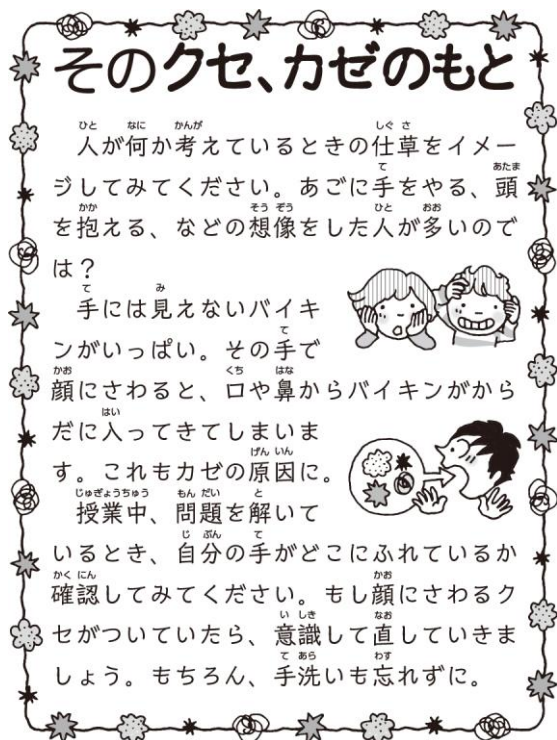 そのクセ、カゼのもと
人が何か考えているときの仕草をイメー
ジしてみてください。あごに手をやる、頭
を抱える、などの想像をした人が多いので
は？
手には見えないバイキ
ンがいっぱい。その手で
顔にさわると、口や鼻からバイキンがから
だに入ってきてしまいま
す。これもカゼの原因に。
授業中、問題を解いて
いるとき、自分の手がどこにふれているか
確認してみてください。もし顔にさわるク
セがついていたら、意識して直していきま
しょう。もちろん、手洗いも忘れずに。